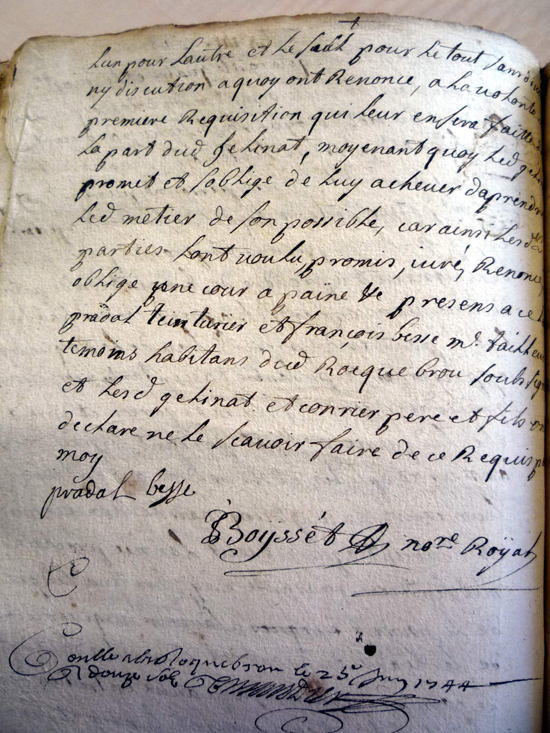 lun pour lautre et le seul pour le tout sans
ny discution a quoy ont Renoncé, a la
premiere Requisition qui leur en sera faitte
la part dud gelinat, moyenant quoy led
promet et soblige de luy achever daprendre
led métier de son possible, car ainsi lesd
parties lont voulu, promis, juré, Renoncé
obligé pne cour a paine &c presens a ce
pradal teinturier et françois besse md
temoins habitans dud Rocque brou soubs
et lesd gelinat et conrier pere et fils
declaré ne le scavoir faire de ce Requis
moy
pradal besse
Boysset nore Royal
onllé a la Roquebrou le 25e 1744
R douze sols